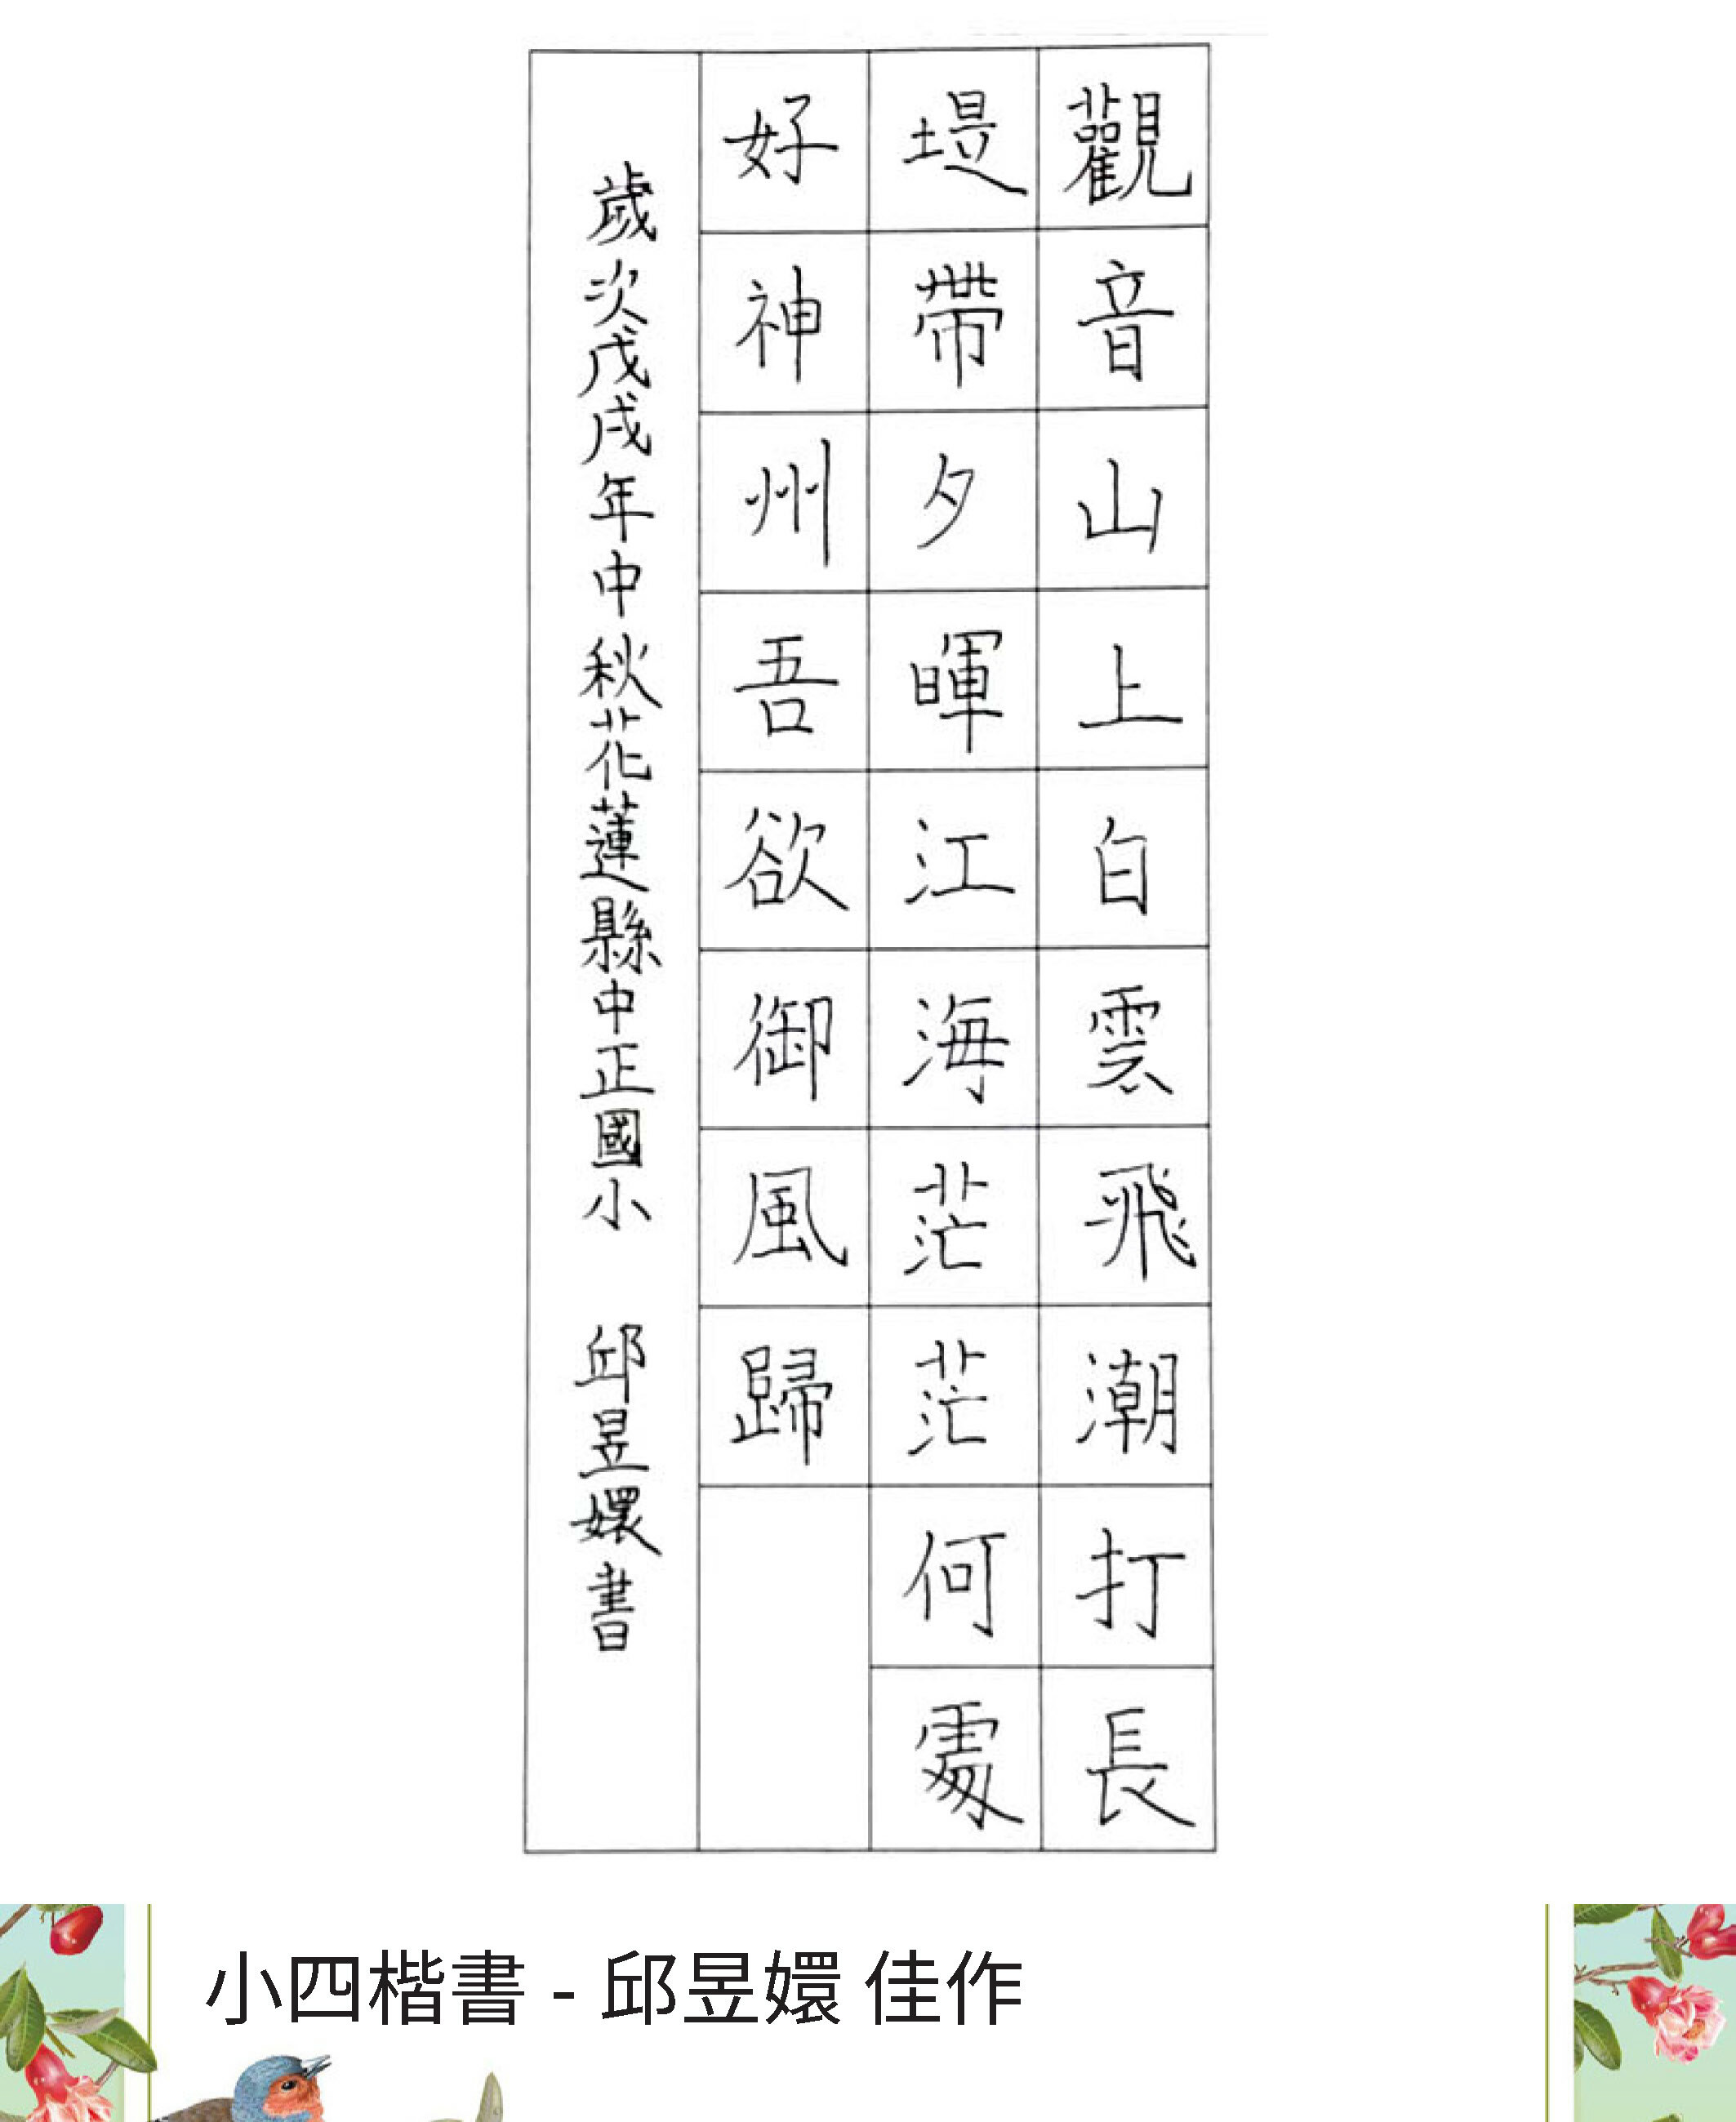 觀音山上白雲飛潮打長
堤帶夕暉江海茫茫何處
好神州吾欲御風歸
歲次戊戌年中秋花蓮縣中正國小 邱昱嬛書
小四楷書 - 邱昱嬛 佳作